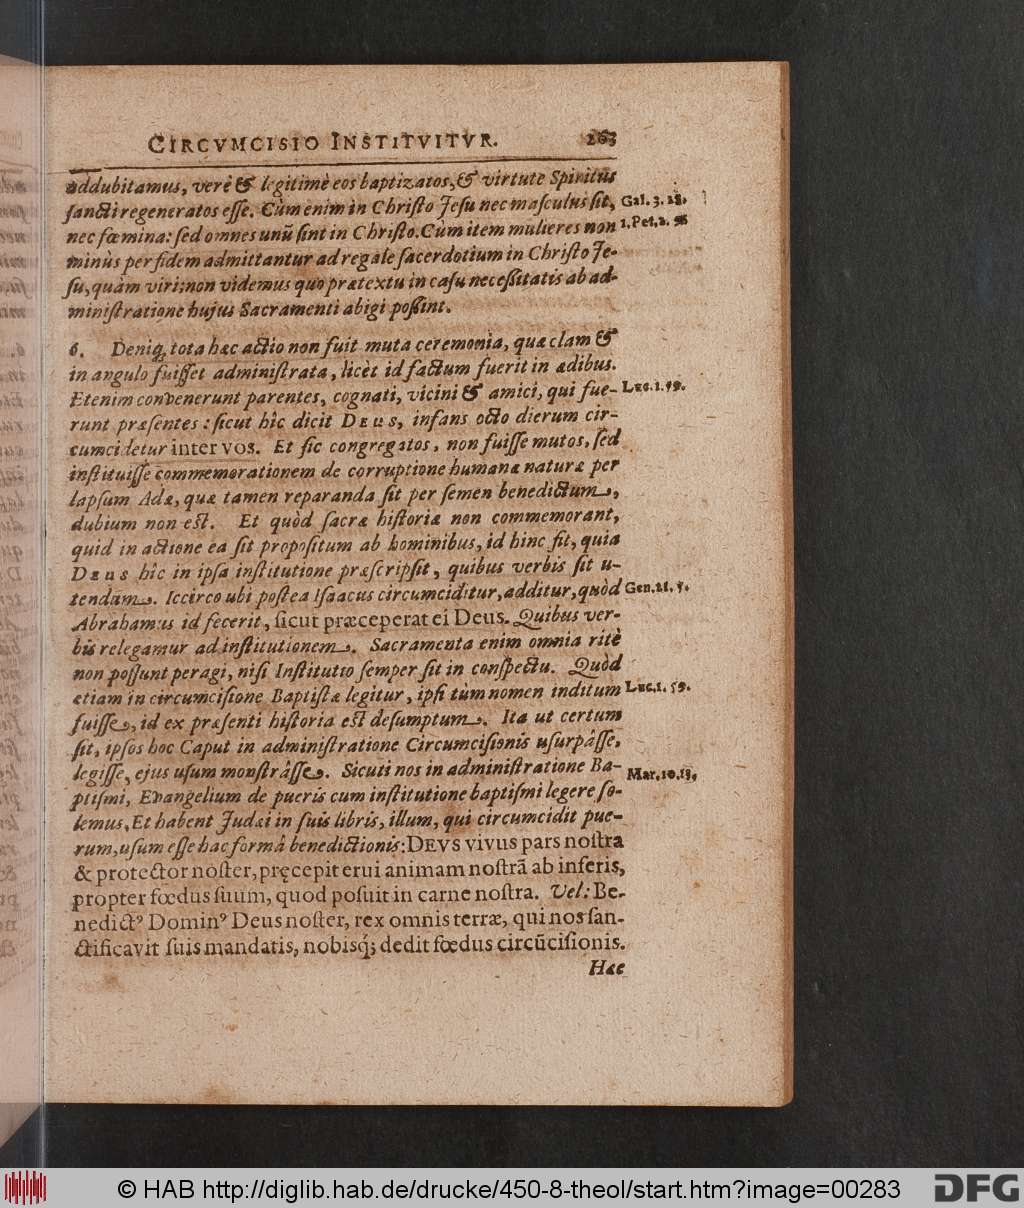 CIRCVMCISIO INSTITVITVR. 263
addubitamus, verè & legitimè eos baptizatos, & virtute Spiritûs
ſancti regeneratos eſſe. Cùm enim in Chriſto Jeſu nec maſculus ſit, Gal. 3. 28.
nec fœmina: ſed omnes unũ ſint in Chriſto. Cùm item mulieres non 1. Pet. 2.
minùs per fidem admittantur ad regale ſacerdotium in Chriſto Je-
ſu, quàm viri: non videmus quo prætextu in caſu neceſſitatis ab ad-
miniſtratione hujus Sacramenti abigi poſſint.
6. Deniq; tota hæc actio non fuit muta ceremonia, quæ clam &
in angulo fuiſſet adminiſtrata, licèt id factum fuerit in ædibus.
Etenim convenerunt parentes, cognati, vicini & amici, qui fue- Luc. 1. 59.
runt præſentes: ſicut hîc dicit DEUS, infans octo dierum cir-
cumcidetur inter vos. Et ſic congregatos, non fuiſſe mutos, ſed
inſtituiſſe commemorationem de corruptione humanæ naturæ per
lapſum Adæ, quæ tamen reparanda ſit per ſemen benedictum,
dubium non eſt. Et quòd ſacræ hiſtoriæ non commemorant,
quid in actione ea ſit propoſitum ab hominibus, id hinc fit, quia
DEUS hîc in ipſa inſtitutione præſcripſit, quibus verbis ſit u-
tendum. Iccirco ubi poſtea Iſaacus circumciditur, additur, quòd Gen. 21. 4.
Abrahamus id fecerit, ſicut præceperat ei Deus. Quibus ver-
bis relegamur ad inſtitutionem. Sacramenta enim omnia ritè
non poſſunt peragi, niſi Inſtitutio ſemper ſit in conſpectu. Quòd
etiam in circumciſione Baptiſtæ legitur, ipſi tùm nomen inditum Luc. 1. 59.
fuiſſe, id ex præſenti hiſtoria eſt deſumptum. Ita ut certum
ſit, ipſos hoc Caput in adminiſtratione Circumciſionis uſurpâſſe,
legiſſe, ejus uſum monſtrâſſe. Sicuti nos in adminiſtratione Ba- Mar. 10. 13.
ptiſmi, Evangelium de pueris cum inſtitutione baptiſmi legere ſo-
lemus. Et habent Judæi in ſuis libris, illum, qui circumcidit pue-
rum, uſum eſſe hac formâ benedictionis: DEVS vivus pars noſtra
& protector noſter, pręcepit erui animam noſtrã ab inferis,
propter fœdus ſuum, quod poſuit in carne noſtra. Vel: Be-
nedictꝰ Dominꝰ Deus noſter, rex omnis terræ, qui nos ſan-
ctificavit ſuis mandatis, nobisq́; dedit fœdus circũciſionis.
Hæc
© HAB http://diglib.hab.de/drucke/450-8-theol/start.htm?image=00283
DFG